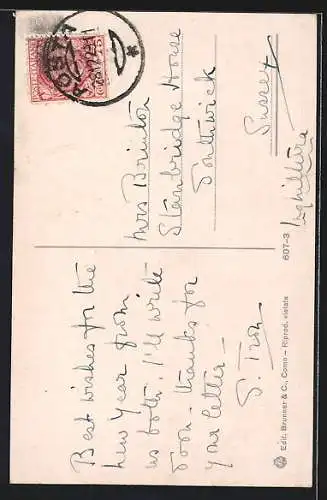 Best wishes for the
new Year from
us both. I'll write
soon. thanks for
your letter —
Mrs Brinton
Stanbridge House
Southwick
Sussex
Inghilterra
607-3
Edit. Brunner & C., Como – Riprod. vietata